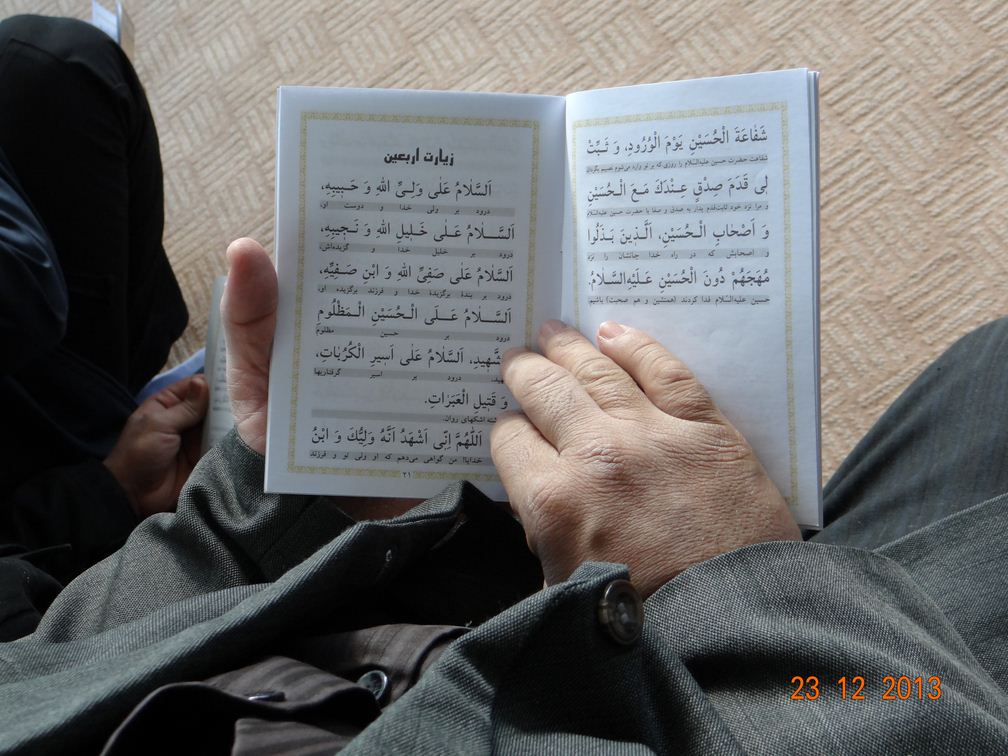 شَفٰاعَةَ الْحُسَيْنِ يَوْمَ الْوُرُودِ، وَ ثَبِّتْ
شفاعت حضرت حسین علیه‌السلام را روزی که بر تو وارد می‌شوم نصیبم بگردان
لِی قَدَمَ صِدْقٍ عِنْدَكَ مَعَ الْحُسَيْنِ
و مرا نزد خود ثابت‌قدم بدار به صدق و صفا با حضرت حسین علیه‌السلام
وَ اَصْحٰابِ الْحُسَيْنِ، اَلَّذِينَ بَذَلُوا
و اصحابش که در راه خدا جانشان را نزد
مُهَجَهُمْ دُونَ الْحُسَيْنِ عَلَيْهِ‌السَّلامُ.
حسین علیه‌السلام فدا کردند (همنشین و هم صحبت) باشیم
زیارت اربعین
اَلسَّلٰامُ عَلٰى وَلِىِّ اللهِ وَ حَبِيبِهِ،
درود بر ولی خدا و دوست او،
اَلسَّلٰامُ عَلٰى خَلِيلِ اللهِ وَ نَجِيبِهِ،
درود بر خلیل خدا و گزیده‌اش،
اَلسَّلٰامُ عَلٰى صَفِىِّ اللهِ وَ ابْنِ صَفِيِّهِ،
درود بر بندهٔ برگزیدهٔ خدا و فرزند برگزیده او،
اَلسَّلٰامُ عَلَى الْحُسَيْنِ الْمَظْلُومِ
درود بر حسین مظلوم
اَلسَّلٰامُ عَلٰى اَسِيرِ الْكُرُبٰاتِ،
درود بر اسیر گرفتاریها
وَ قَتِيلِ الْعَبَرٰاتِ.
اشکهای روان.
اَللّٰهُمَّ اِنّٖى اَشْهَدُ اَنَّهُ وَلِيُّكَ وَ ابْنُ
خدایا! من گواهی می‌دهم که او ولی تو و فرزند
۲۱
23 12 2013